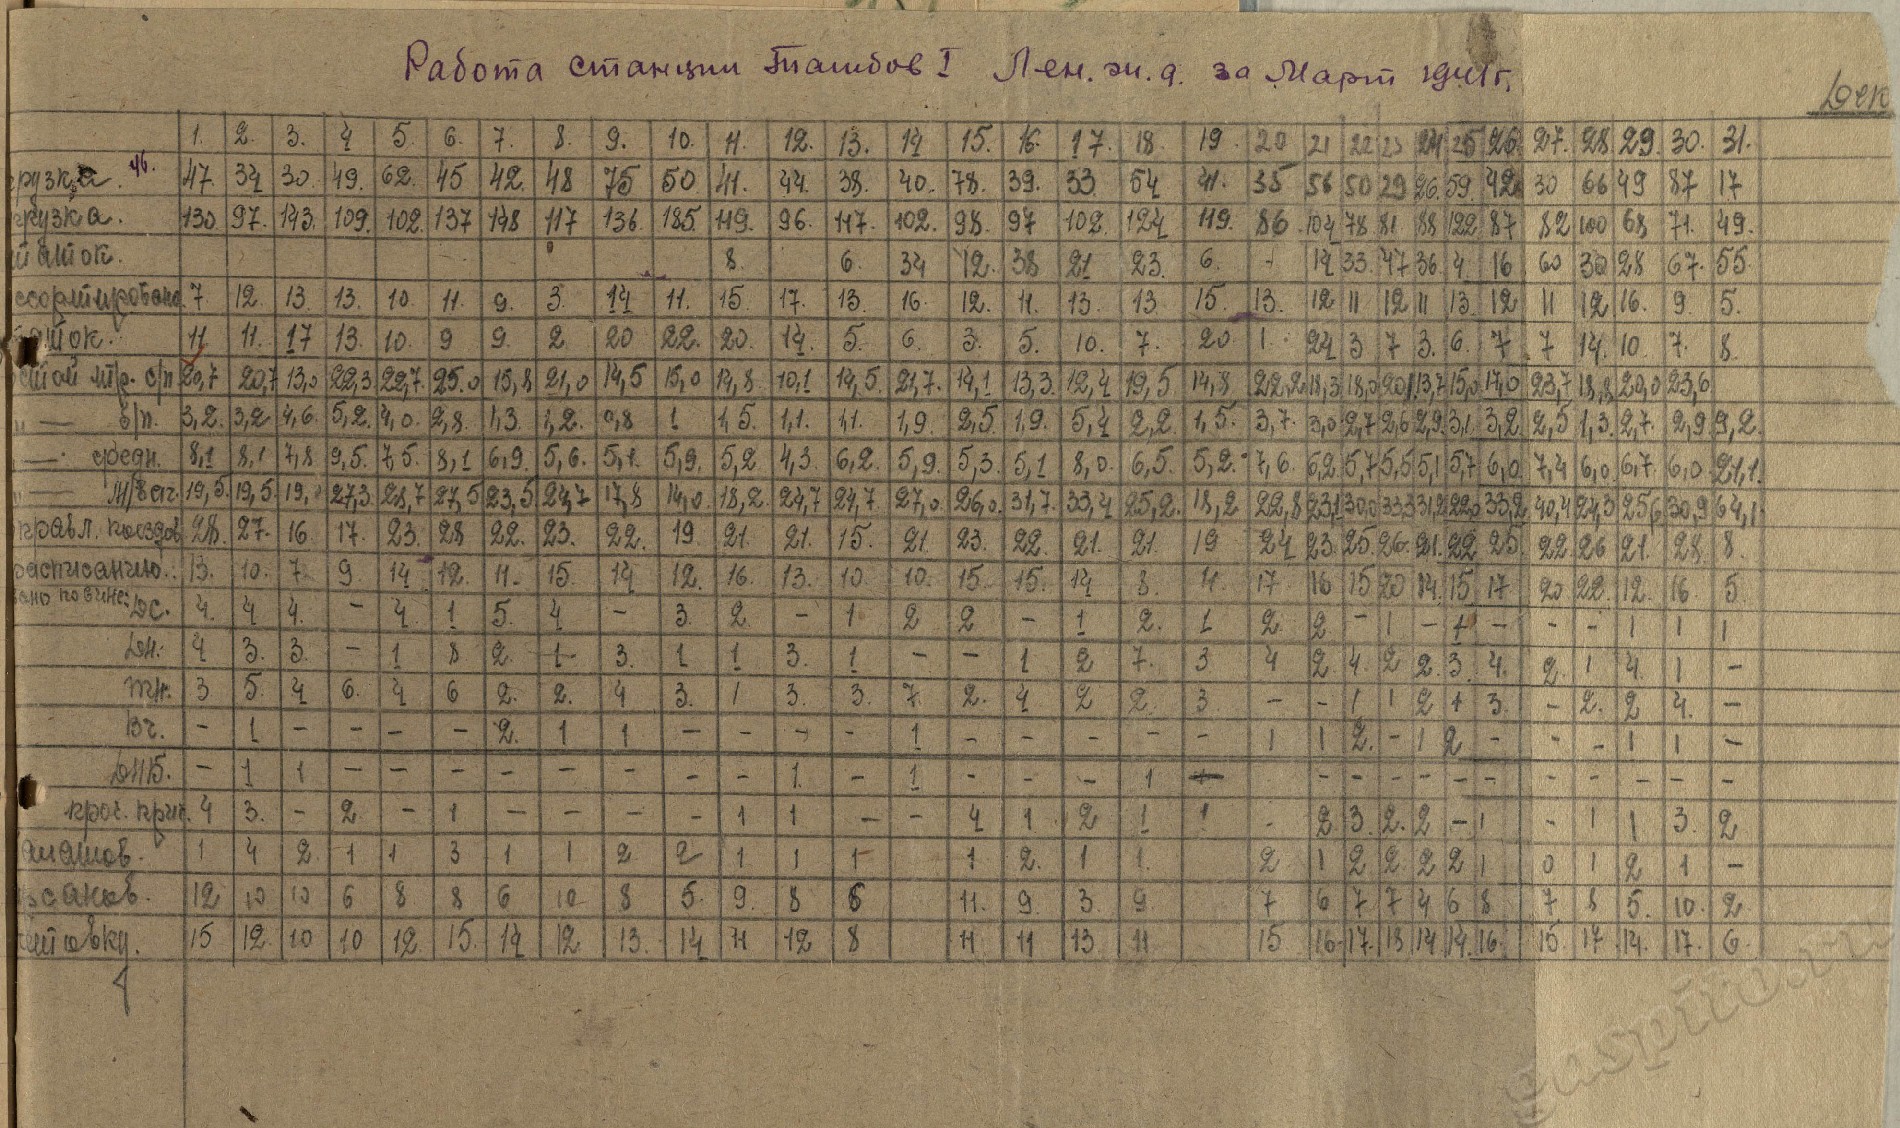 Работа станции Тамбов I Лен. ж. д. за Март 1941 г.
Дек
1. 2. 3. 4 5. 6. 7. 8. 9. 10. 11. 12. 13. 14 15. 16. 17. 18. 19. 20 21 22 23 24 25 26. 27. 28 29. 30. 31.
грузка. 46. 47. 34 30. 49. 62. 45 42. 48 75 50 41. 44. 38. 40. 78. 39. 33. 54 41. 35 56 50 29 26. 59. 42 30 66 49 87 17
грузка. 130. 97. 143. 109. 102. 137 148 117 136. 185. 119. 96. 117. 102. 98. 97 102. 124 119. 86 104 78 81 88 122 87 82 100 68 71. 49.
таток. 8. 6. 34 12. 38 21 23. 6. - 14 33. 47 36. 4. 16 60 30 28 67. 55.
ссортировано 7. 12. 13. 13. 10. 11. 9. 3. 14 11. 15. 17. 13. 16. 12. 11. 13. 13. 15. 13. 12 11 12 11 13. 12 11 12 16. 9. 5.
таток. 11 11. 17 13. 10. 9 9. 2. 20 22. 20. 14. 5. 6. 3. 5. 10. 7. 20 1. 24 3 7 3. 6. 7 7 14. 10. 7. 8.
стой тр. с/п 20,7 20,7 13,0 22,3 22,7. 25.0 15,8 21,0 14,5 15,0 14,8. 10,1 14,5. 21,7. 14,1 13,3. 12,4 19,5 14,8. 22,2 18,3 18,0 20,1 13,7 15,0 17,0 23,7 18,8 20,0 23,6
„ — б/п. 3,2. 3,2 4,6. 5,2. 4,0. 2,8. 1,3. 1,2. 0,8 1 1,5. 1,1. 1,1. 1,9. 2,5. 1,9. 5,4 2,2. 1,5. 3,7. 3,0 2,7 2,6 2,9 3,1 3,2 2,5 1,3. 2,7. 2,9 9,2.
— средн. 8,1 8,1 7,8 9,5. 7,5. 8,1 6,9. 5,6. 5,1. 5,9. 5,2 4,3. 6,2. 5,9. 5,3. 5,1 8,0. 6,5. 5,2. 7,6. 6,2 5,7 5,5 5,1 5,7 6,0 7,4 6,0 6,7. 6,0 21,1.
„ — М/ваг. 19,5. 19,5 19, 27,3. 28,7 27,5 23,5 24,7 17,8 14,0 18,2. 24,7 24,7. 27,0 26,0. 31,7. 33,4 25,2. 18,2 22,8 23,1 30,0 33,3 31,2 22,0 33,2 40,4 24,3 25,6 30,9 64,1
правл. поездов 28. 27. 16. 17. 23. 28 22. 23. 22. 19. 21. 21. 15. 21 23. 22. 21. 21. 19 24 23. 25. 26. 21. 22 25 22. 26 21. 28. 8.
расписанию. 13. 10. 7. 9. 14 12. 11. 15. 14 12. 16. 13. 10 10. 15. 15. 14 8. 11. 17. 16 15 20 14. 15 17 20 22. 12. 16. 5.
ано по вине: ДС. 4. 4 4. - 4. 1 5. 4 - 3. 2. - 1 2 2 - 1 2. 1 2. 2 - 1 - 1 - - - 1 1 1
ДН. 4 3. 3. - 1 8 2. 1 3. 1 1 3. 1 - - 1 2 7. 3 4 2. 4. 2 2. 3. 4. 2. 1 4. 1 -
тн. 3 5. 4 6. 4 6 2. 2. 4 3. 1 3. 3. 7. 2. 4 2 2. 3 - - 1 1 2 1 3. - 2. 2 4. -
Вч. - 1 - - - - 2. 1 1 - - - - 1 - - - - - 1 1 2. - 1 2 - - - 1 1 -
ДНБ. - 1 1 - - - - - - - - 1. - 1 - - - 1 - - - - - - - - - - - -
проч. прич. 4 3. - 2 - 1 - - - - 1 1 - - 4 1 2 1 1 - 2 3. 2. 2 - 1 - 1 1 3. 2
алашов. 1 4 2. 1 1 3 1 1 2 2 1 1 1 1 2. 1 1. 2 1 2 2. 2 2 1 0 1 2 1 -
рсанов. 12 10 10 6 8 8 6 10 8 5. 9. 8 6 11. 9. 3. 9 7 6 7 7 4 6 8 7 8 5. 10. 2
товку. 15 12. 10 10 12. 15. 14 12 13. 14 11 12 8 11 11 13. 11 15 16. 17. 18 14 14. 16. 15 17 14. 17. 6.
gaspito.ru